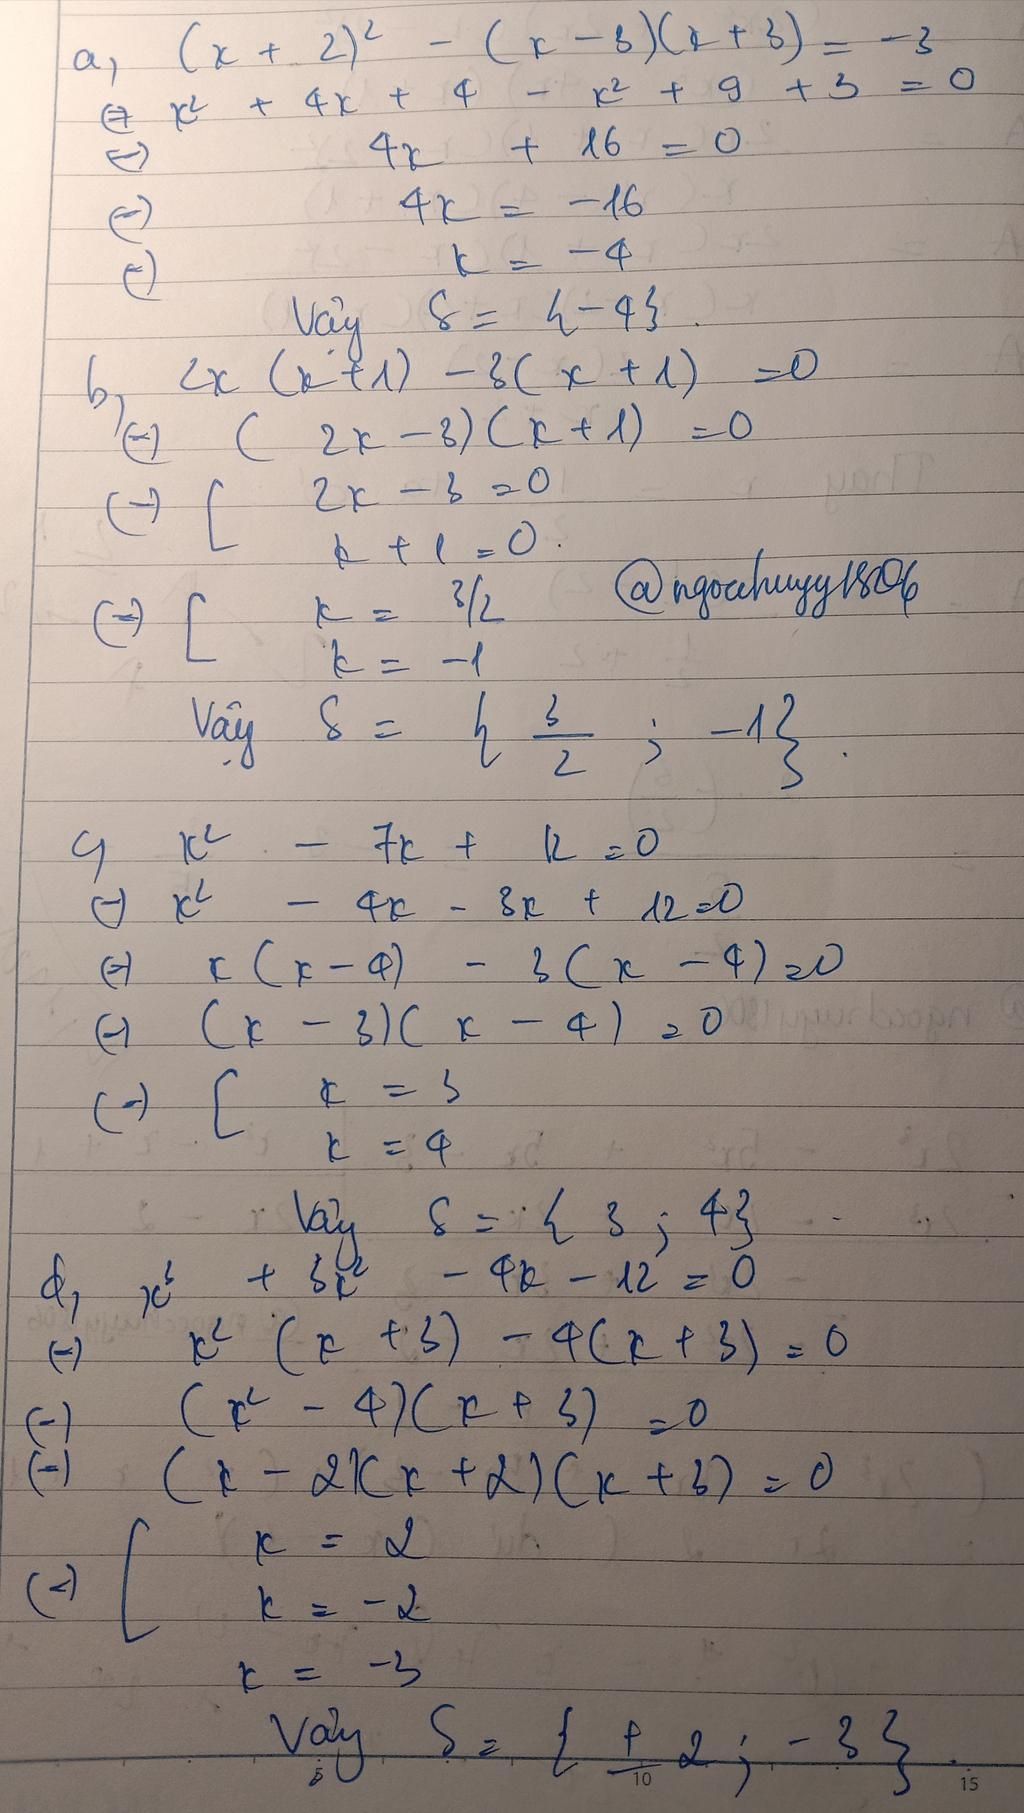 a, (x + 2)² - (x - 3)(x + 3) = -3
⇔ x² + 4x + 4 - x² + 9 + 3 = 0
⇔ 4x + 16 = 0
⇔ 4x = -16
⇔ x = -4
Vậy S = {-4}.
b, 2x (x + 1) - 3(x + 1) = 0
⇔ (2x - 3)(x + 1) = 0
⇔ [ 2x - 3 = 0
x + 1 = 0.
@ngocchuyy1806
⇔ [ x = 3/2
x = -1
Vậy S = { 3/2 ; -1}.
c, x² - 7x + 12 = 0
⇔ x² - 4x - 3x + 12 = 0
⇔ x(x - 4) - 3(x - 4) = 0
⇔ (x - 3)(x - 4) = 0
⇔ [ x = 3
x = 4
Vậy S = { 3 ; 4}.
d, x³ + 3x² - 4x - 12 = 0
⇔ x² (x + 3) - 4(x + 3) = 0
⇔ (x² - 4)(x + 3) = 0
⇔ (x - 2)(x + 2)(x + 3) = 0
⇔ [ x = 2
x = -2
x = -3
Vậy S = { ± 2 ; -3}.
5 10 15